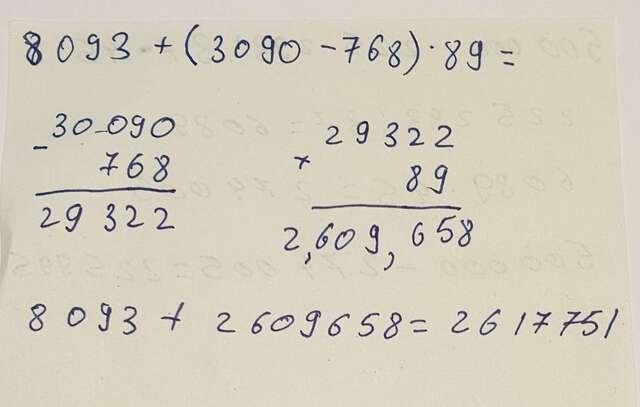 8 093 + (3090 - 768) · 89 =
- 30-090
768
29 322
× 29322
89
2,609,658
8 093 + 2609658 = 2617751